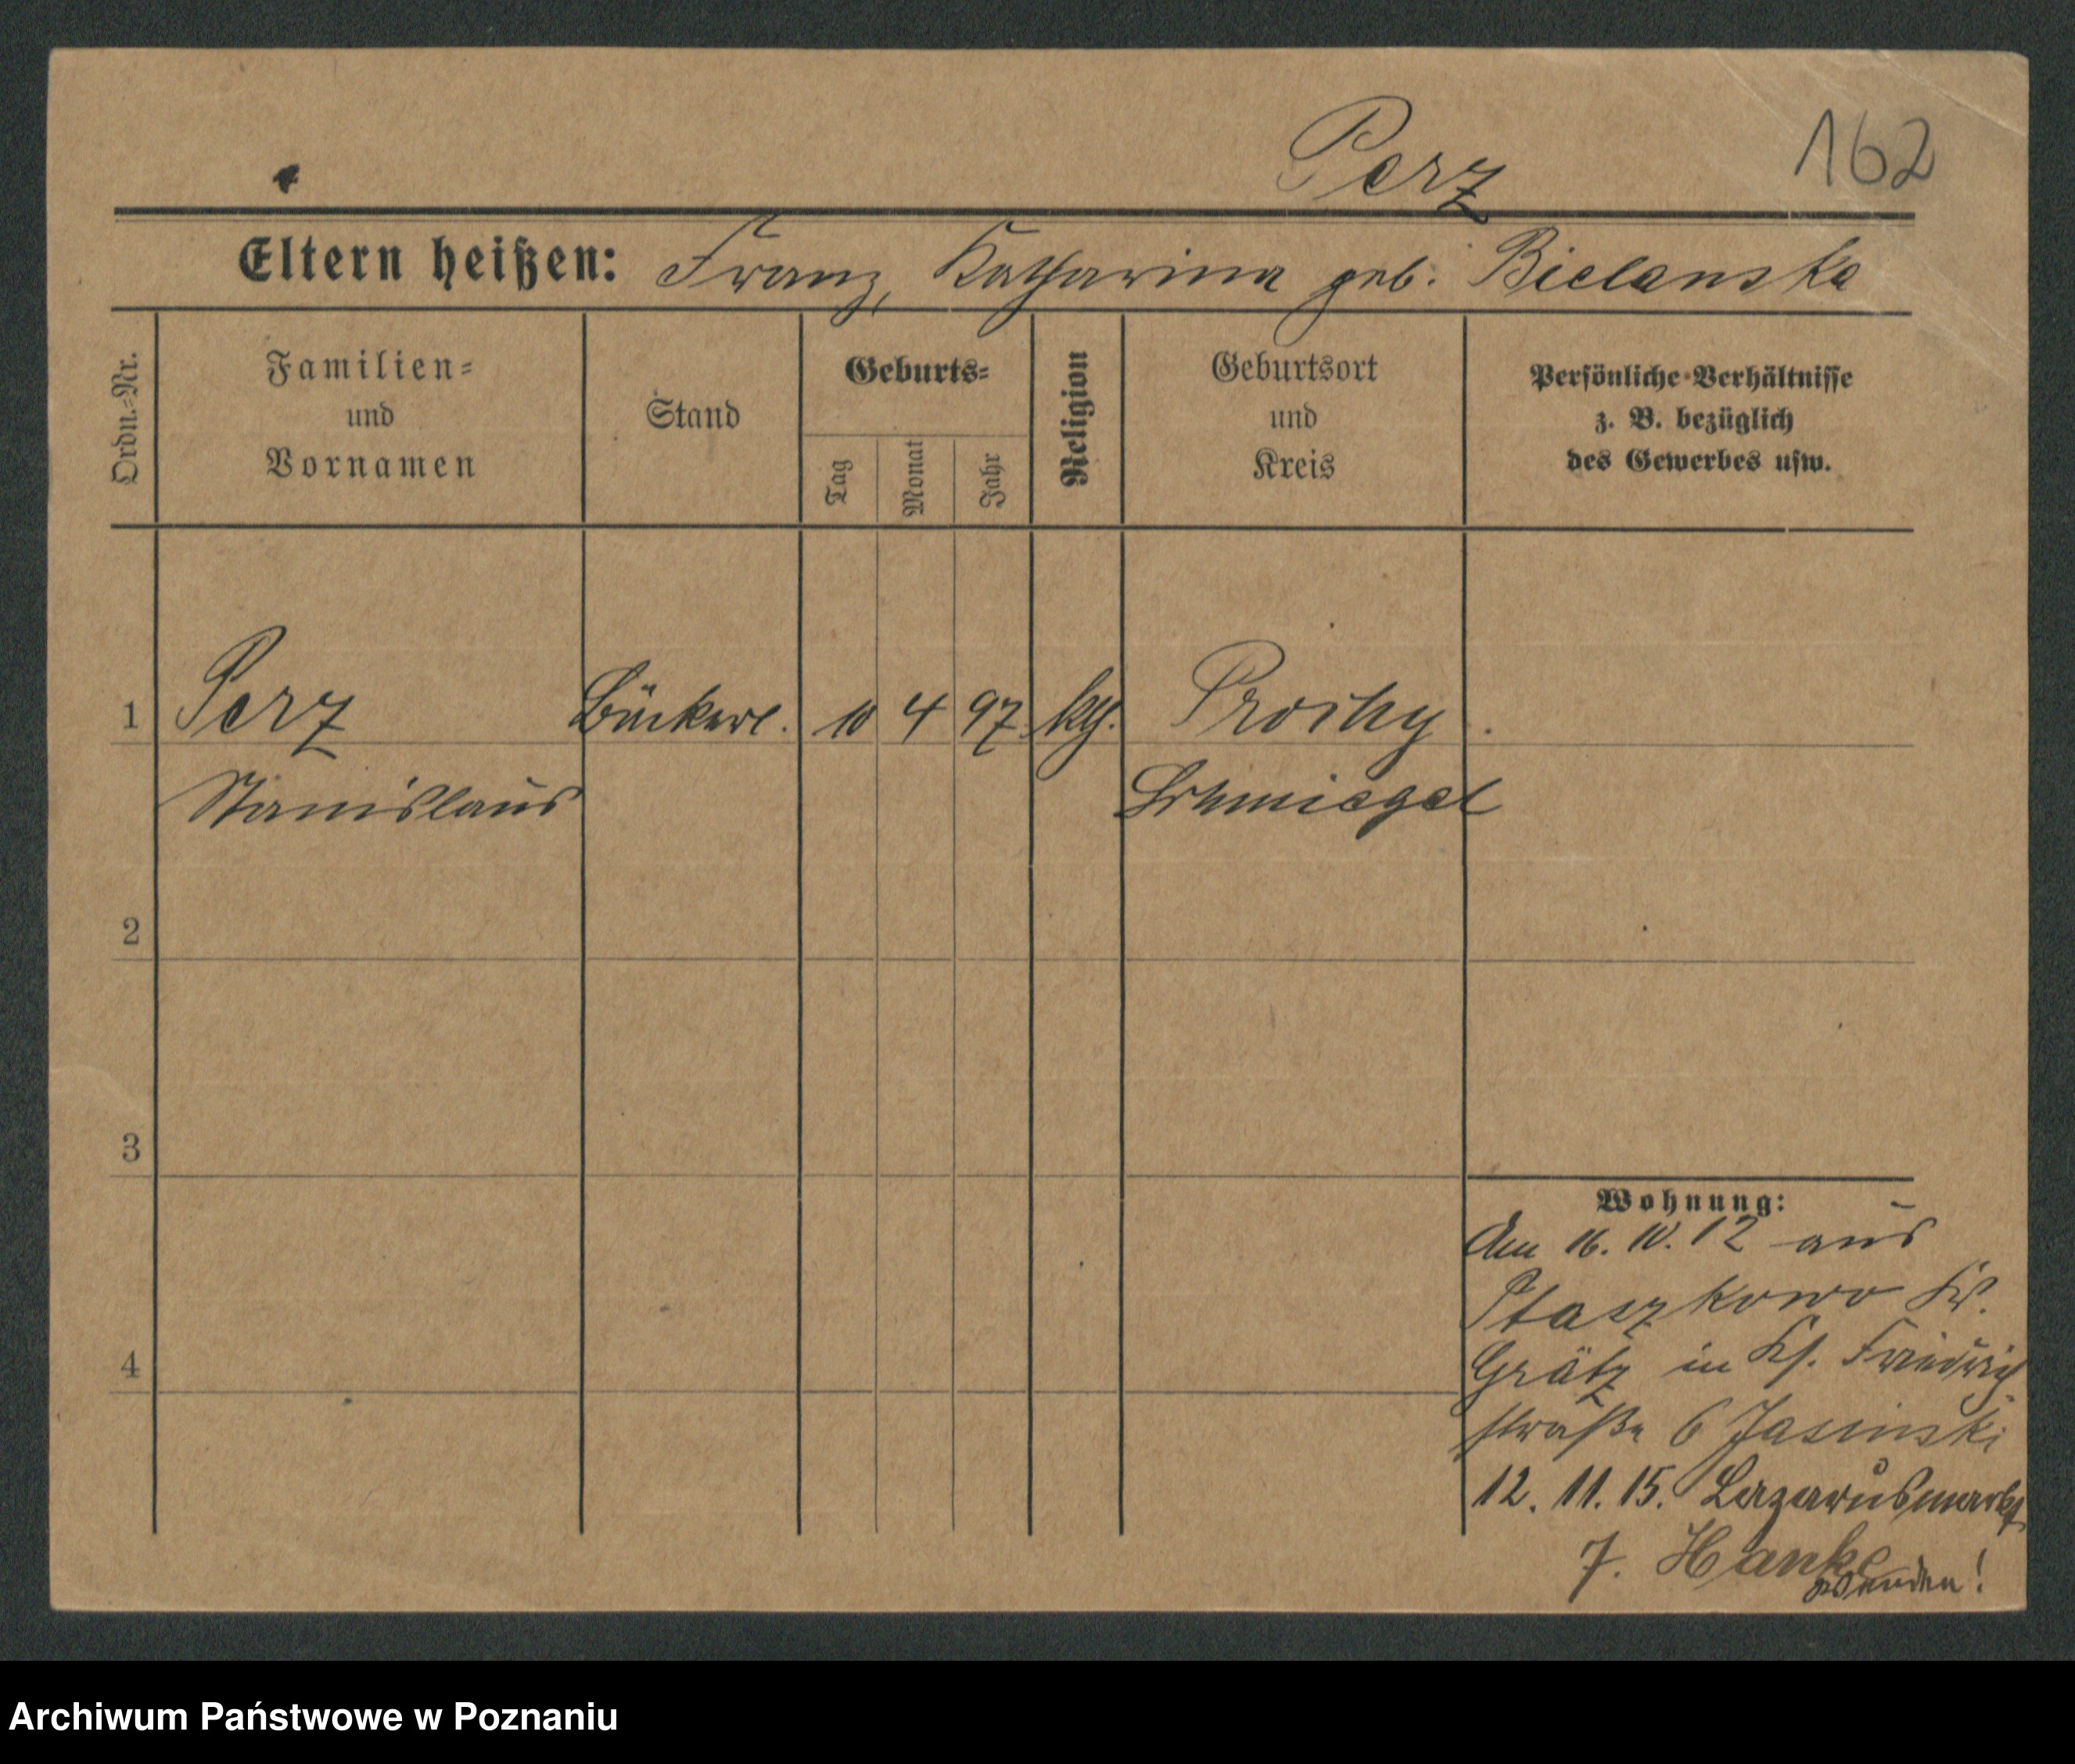 Perz
162
Eltern heißen: Franz, Katharina geb. Bielanska
Ordn.-Nr.
Familien-
und
Vornamen
Stand
Geburts-
Tag
Monat
Jahr
Religion
Geburtsort
und
Kreis
Persönliche Verhältnisse
z. B. bezüglich
des Gewerbes usw.
1 Perz Bäckerl. 10 4 97 kth.
Stanislaus Schmiegel
2
3
4
Wohnung:
Am 16. 10. 12 aus
Ptaszkowo Kr.
Grätz in Ks. Friedrich
straße 6 Jasinski
12. 11. 15. Lazarusmarkt
7. Hanke
wenden!
Archiwum Państwowe w Poznaniu